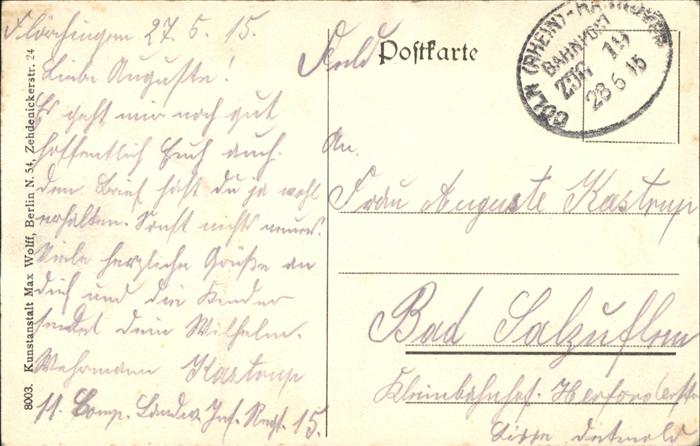 Flörchingen 27.6.15.
Liebe Auguste!
Es geht mir noch gut
hoffentlich Euch auch.
Den Brief hast du ja wohl
erhalten. Sonst nichts neues.
Viele herzliche Grüße an
dich und die Kinder
sendet dein Wilhelm.
Wehrmann Kastrup
11. Comp. Landw. Inf. Regt. 15.
8003. Kunstanstalt Max Wolff, Berlin N. 54, Zehdenickerstr. 24
Feld Postkarte
CÖLN (RHEIN)-HANNOVER
BAHNPOST
ZUG 19
28 6 15
An.
Frau Auguste Kastrup
Bad Salzuflen
Kleinbahnhof. Herforderstr.
Lippe Detmold